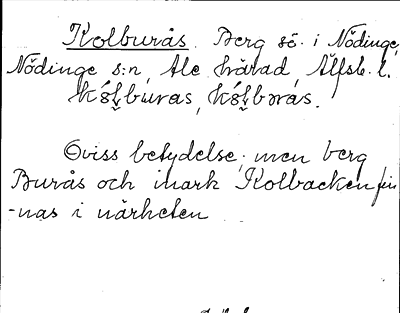 Kolburås. Berg sö. i Nödinge,
Nödinge s:n, Ale härad, Älfsb. l.
Oviss betydelse; men berg
Burås och mark Kolbacken fin
-nas i närheten